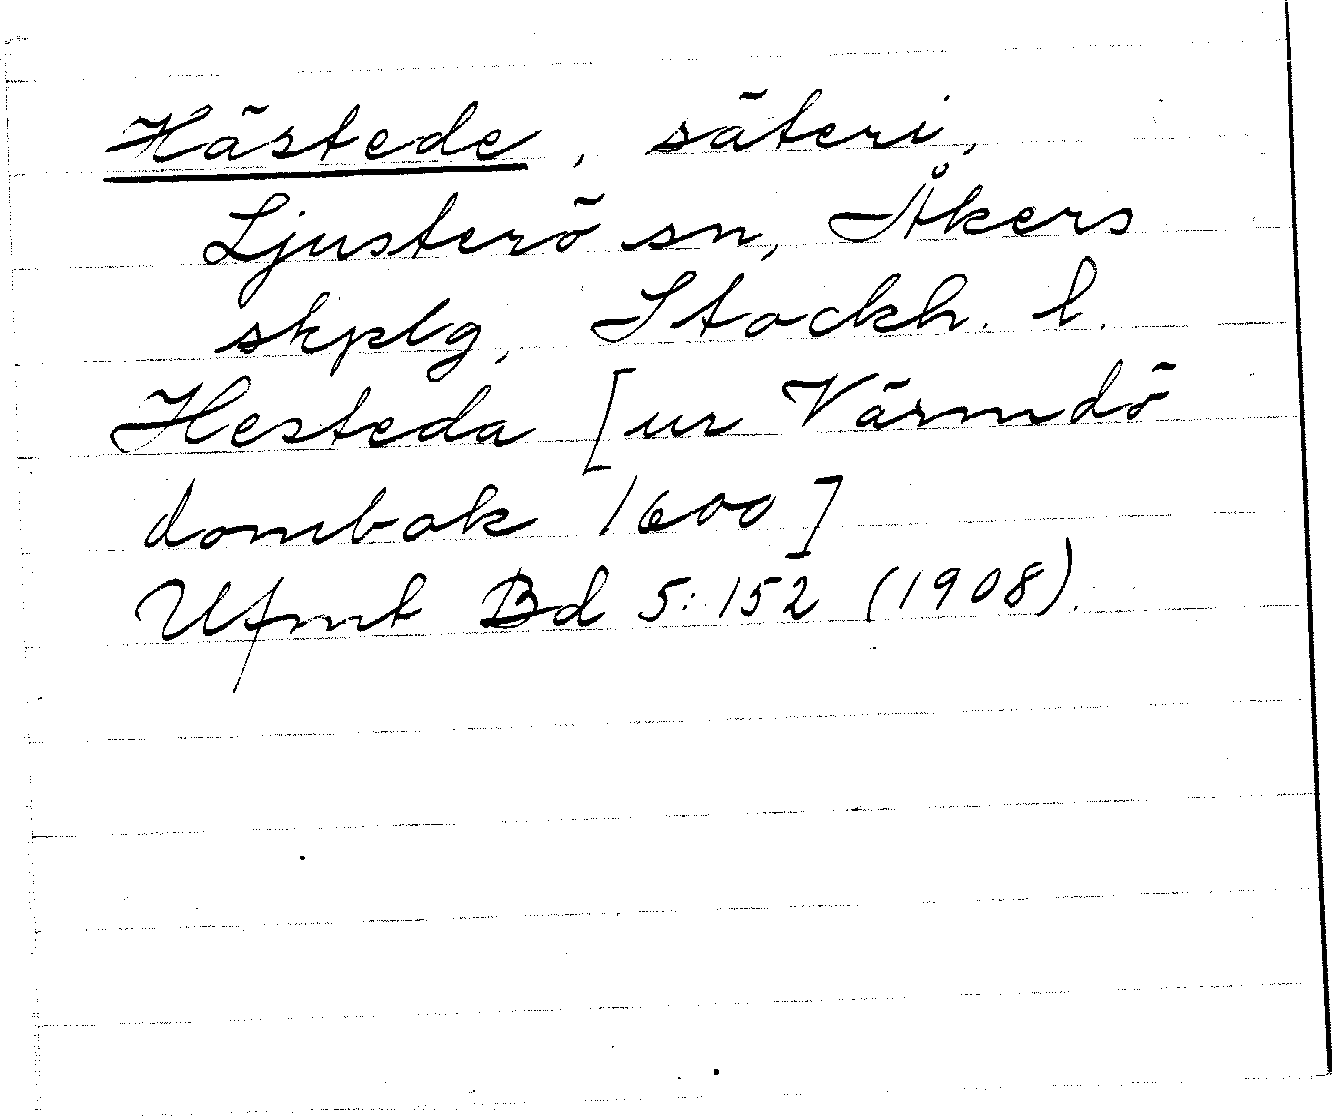 Hästede, säteri,
Ljusterö sn, Åkers
skplg, Stockh. l.
Hesteda [ur Värmdö
dombok 1600]
Ufmt Bd 5:152 (1908).